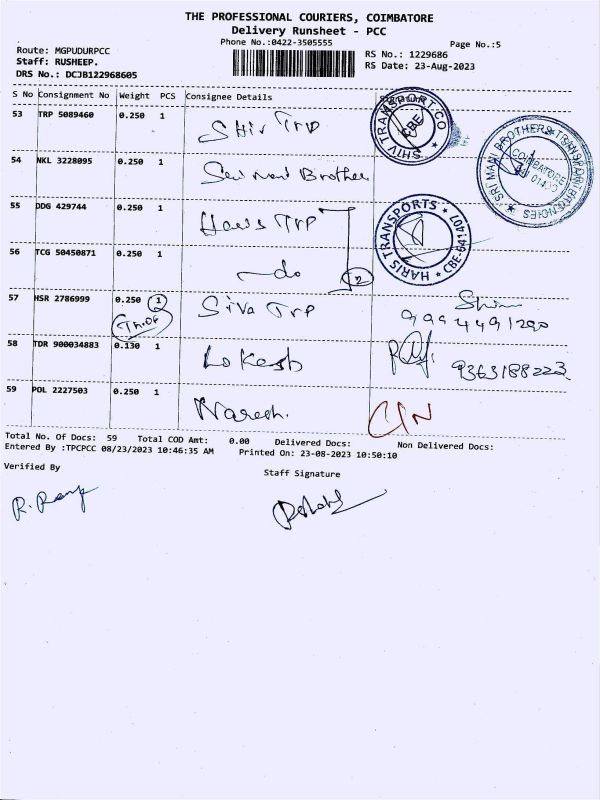 THE PROFESSIONAL COURIERS, COIMBATORE
Delivery Runsheet - PCC
Phone No.:0422-3505555
Page No.:5
Route: MGPUDURPCC
RS No.: 1229686
Staff: RUSHEEP.
RS Date: 23-Aug-2023
DRS No.: DCJB122968605
S No Consignment No Weight PCS Consignee Details
53 TRP 5089460 0.250 1 Shiv TRP
SHIV TRANSPORT CO CBE
54 NKL 3228095 0.250 1 Sri Mani Brothers
SRI MANI BROTHERS TRANSPORT COIMBATORE
55 DDG 429744 0.250 1 Haris TRP
HARIS TRANSPORTS * CBE-641407 *
56 TCG 50450871 0.250 1 do 2
57 HSR 2786999 0.250 1 Siva TRP
9994491290
58 TDR 900034883 0.130 1 Lokesh 9363188223
59 POL 2227503 0.250 1 Naresh. C/N
Total No. Of Docs: 59 Total COD Amt: 0.00 Delivered Docs: Non Delivered Docs:
Entered By :TPCPCC 08/23/2023 10:46:35 AM Printed On: 23-08-2023 10:50:10
Verified By
Staff Signature